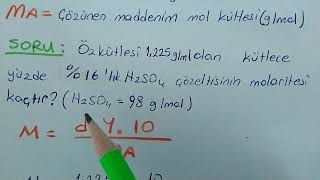 MA = çözünen maddenim mol kütlesi (g/mol)
SORU: Özkütlesi 1,225 g/ml olan kütlece
yüzde %16'lık H₂SO₄ çözeltisinin molaritesi
kaçtır? (H₂SO₄ = 98 g/mol)
M = d. Y. 10
A
1,225